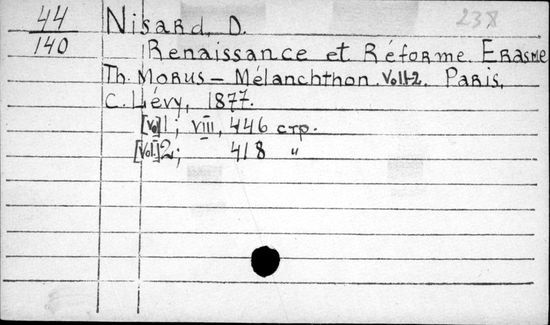 44
140
Nisard, D. 238
Renaissance et Réforme. Erasme
Th. Morus – Mélanchthon. Vol.1-2. Paris,
C. Lévy, 1877.
[Vol]1; VIII, 446 стр.
[Vol.]2; 418 "